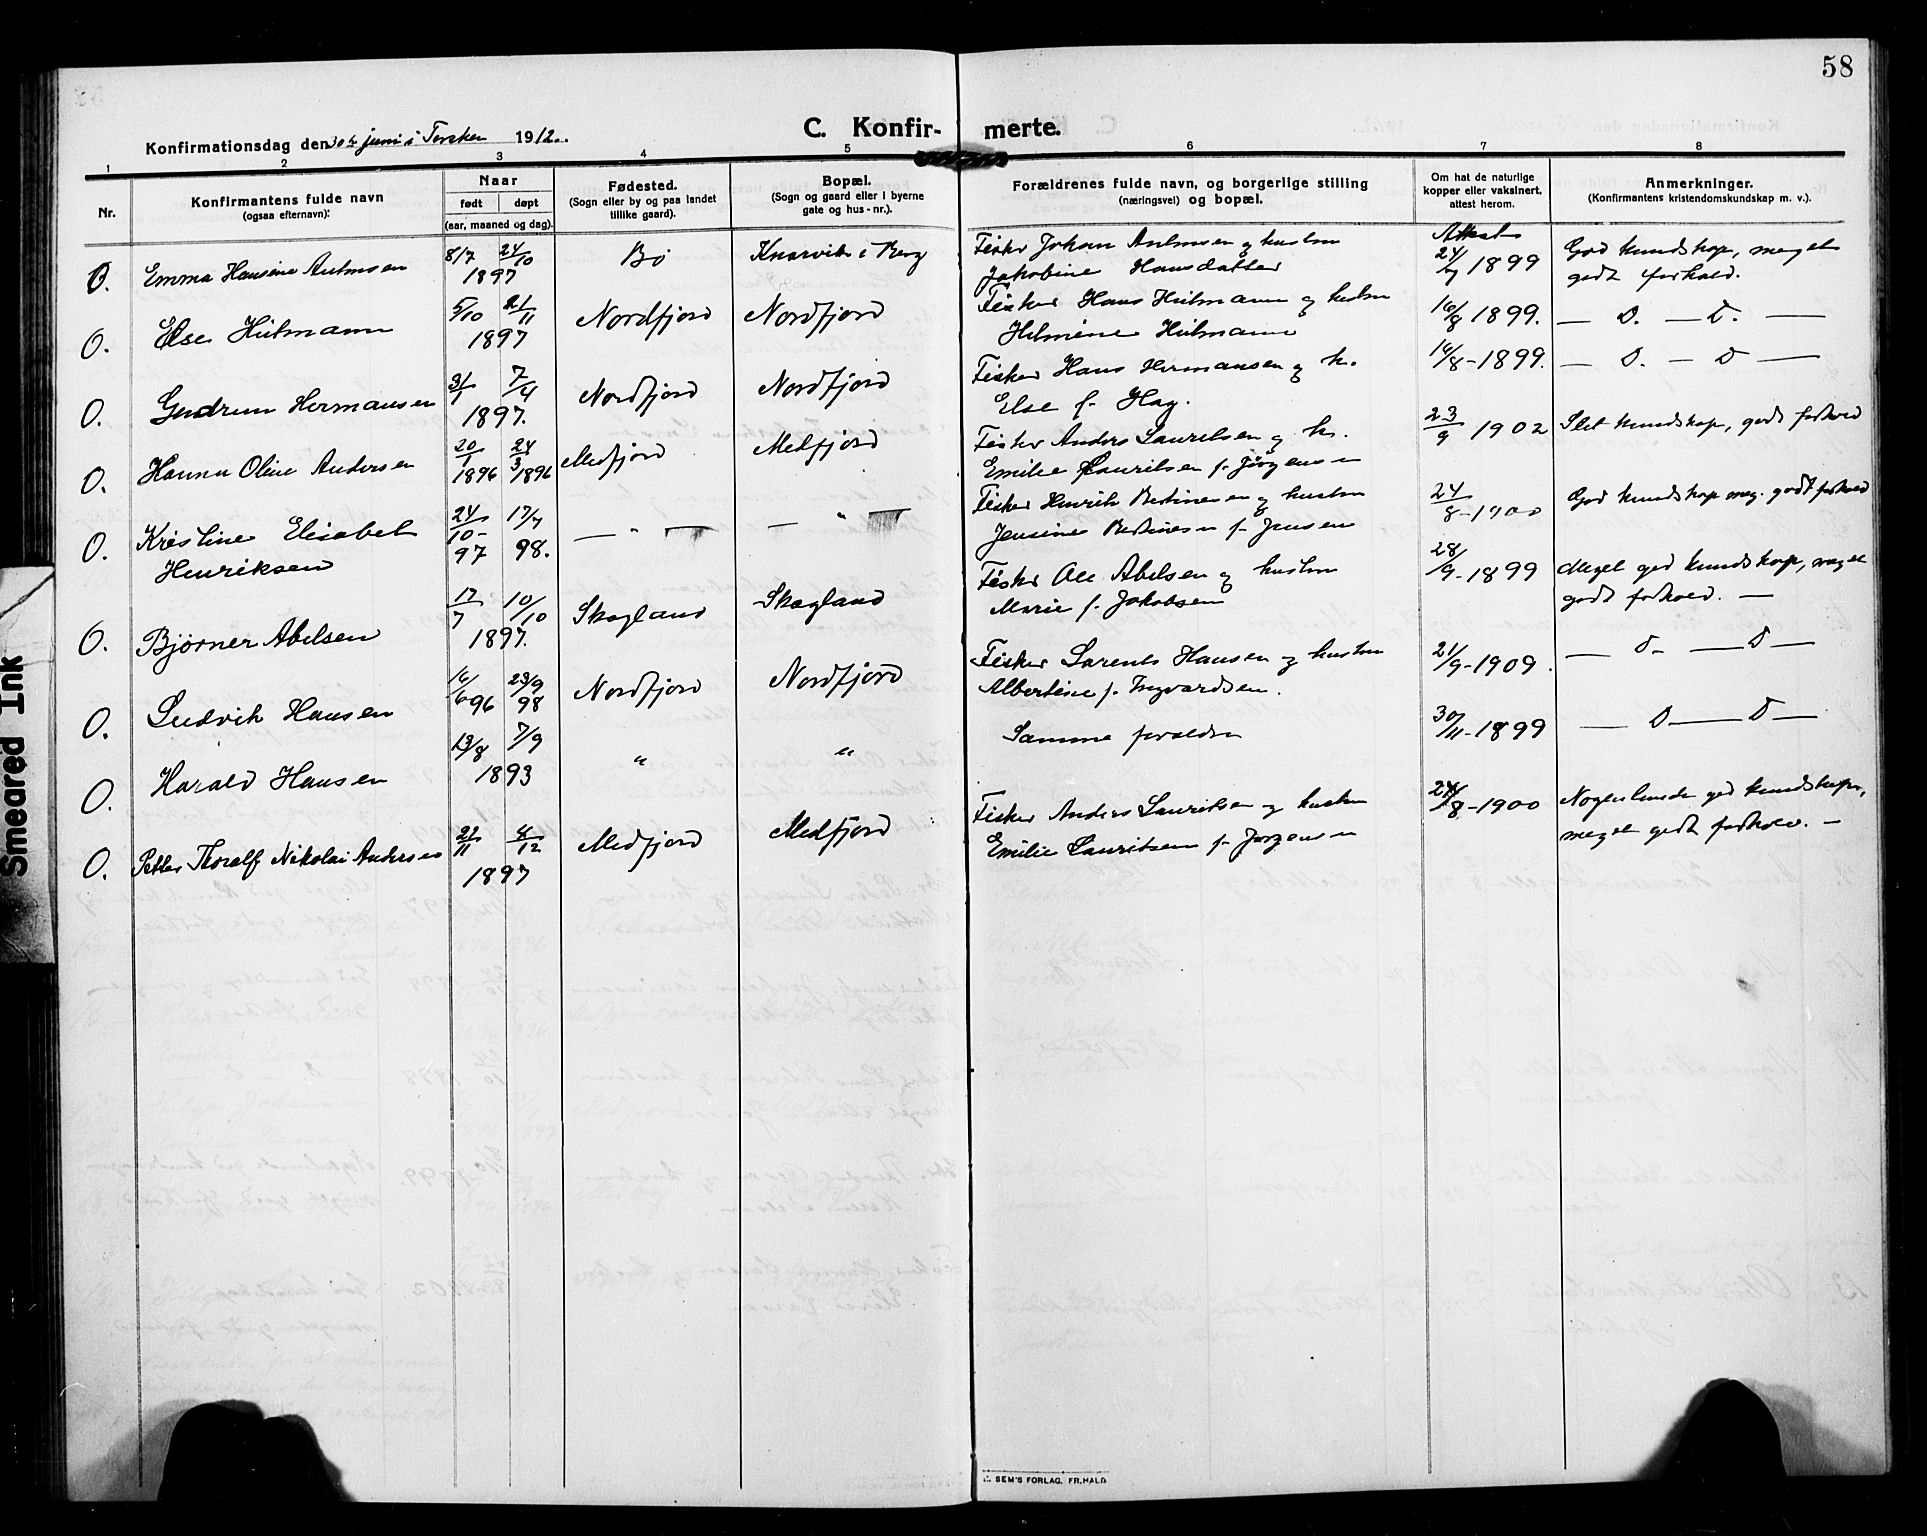 58
C. Konfir- merte.
Konfirmationsdag den 30te juni i Torsken 1912.
1 2 3 4 5 6 7 8
Nr.
Konfirmantens fulde navn
(ogsaa efternavn):
Naar
født døpt
(aar, maaned og dag).
Fødested.
(Sogn eller by og paa landet
tillike gaard).
Bopæl.
(Sogn og gaard eller i byerne
gate og hus-nr.).
Forældrenes fulde navn, og borgerlige stilling
(næringsvei) og bopæl.
Om hat de naturlige
kopper eller vaksinert,
attest herom.
Anmerkninger.
(Konfirmantens kristendomskundskap m. v.).
O. Emma Hansine Antonsen 8/7 24/10 1897 Bø Knarvik i Berg
Fisker Johan Antonsen og hustru
Jakobine Hansdatter
Attest
24/7 1899
God kundskap, meget
godt forhold.
O. Else Hilmann 5/10 21/11 1897 Nordfjord Nordfjord
Fisker Hans Hilmann og hustru
Helmine Hilmann
16/8 1899. — D. — D. —
O. Gudrun Hermansen 3/1 7/4 1897. Nordfjord Nordfjord
Fisker Hans Hermansen og h.
Else f. Hag.
16/8-1899. — D. — D —
O. Hanna Oline Andersen 20/1 1896 24/3 1896 Medfjord Medfjord
Fisker Anders Lauritsen og h.
Emilie Lauritsen f. Jørgensen
23/9 1902 Slet kundskap, godt forhold
O. Kristine Elisabet
Henriksen
24/10-97 17/7 98. — " — — " —
Fisker Henrik Bertinesen og hustru
Jensine Bertinesen f. Jensen
24/8-1900
God kundskap meg. godt forhold
O. Bjørner Abelsen 17/7 10/10 1897. Skogland Skogland
Fisker Ole Abelsen og hustru
Marie f. Jakobsen
28/9-1899
Meget god kundskap, meget
godt forhold. —
O. Ludvik Hansen 16/6 96 23/9 98 Nordfjord Nordfjord
Fisker Lorents Hansen og hustru
Albertine f. Ingvardsen.
21/9-1909. — D — — D —
O. Harald Hansen 13/8 7/9 1893 " "
Samme foreldre
30/11-1899 — D — D —
O. Petter Thoralf Nikolai Andersen 21/11 4/12 1897 Medfjord Medfjord
Fisker Anders Lauritsen og hustru
Emilie Lauritsen f. Jørgensen
24/8-1900
Nogenlunde god kundskap,
meget godt forhold. —
SEM'S FORLAG, FR.HALD
Smeared Ink